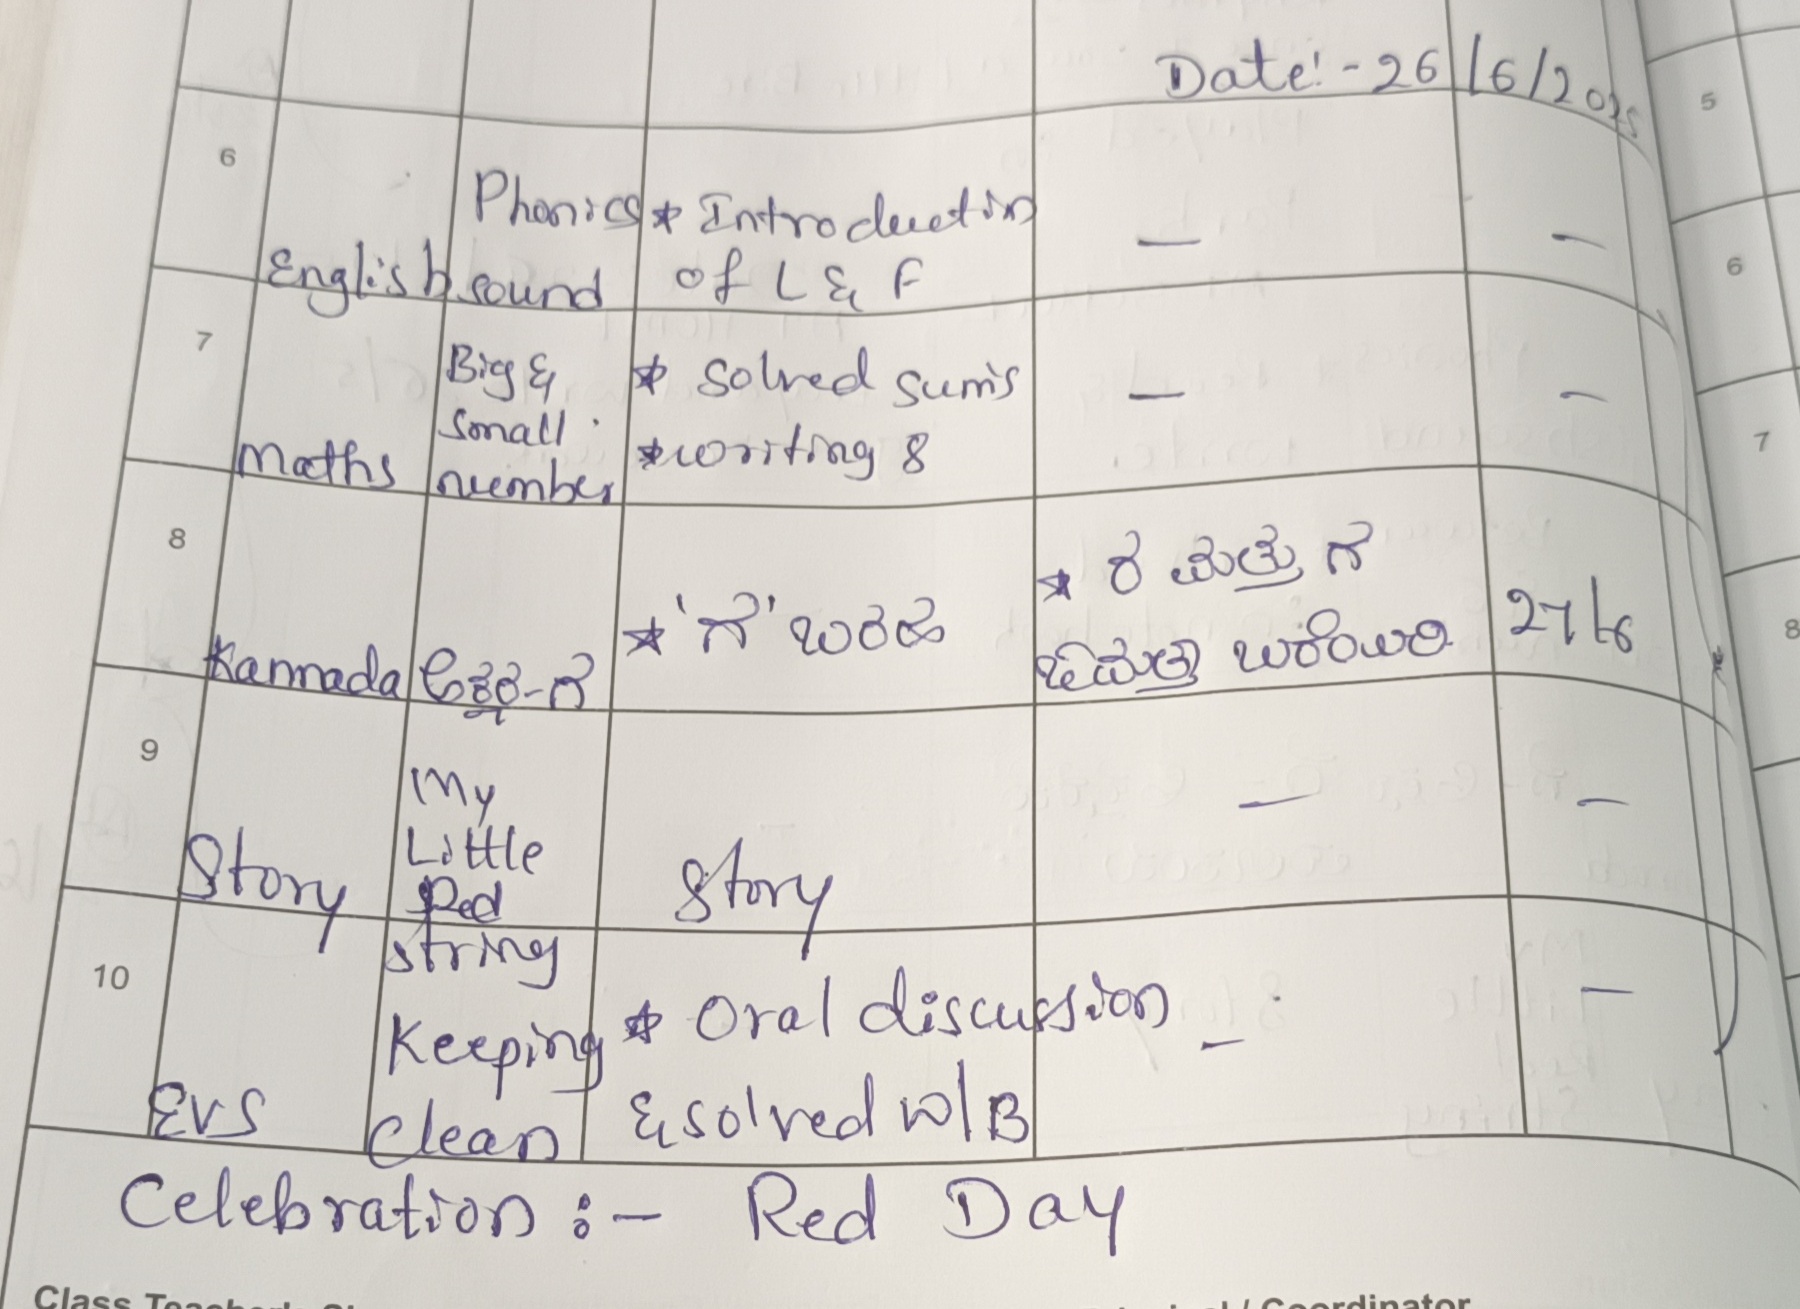 Date:- 26/6/2025
5
6
English
Phonics sound
* Introduction of L & F
—
—
6
7
Maths
Big & small number
* Solved sum's
* writing 8
—
—
7
8
Kannada
ಅಕ್ಷರ-ಗ
* 'ಗ' ಬರಹ
* ರ ಮತ್ತು ಗ
ಬರೆಯಿರಿ
27/6
8
9
Story
My Little Red string
Story
—
—
10
EVS
Keeping clean
* Oral discussion
& solved W/B
—
—
Celebration :- Red Day
Class
Coordinator